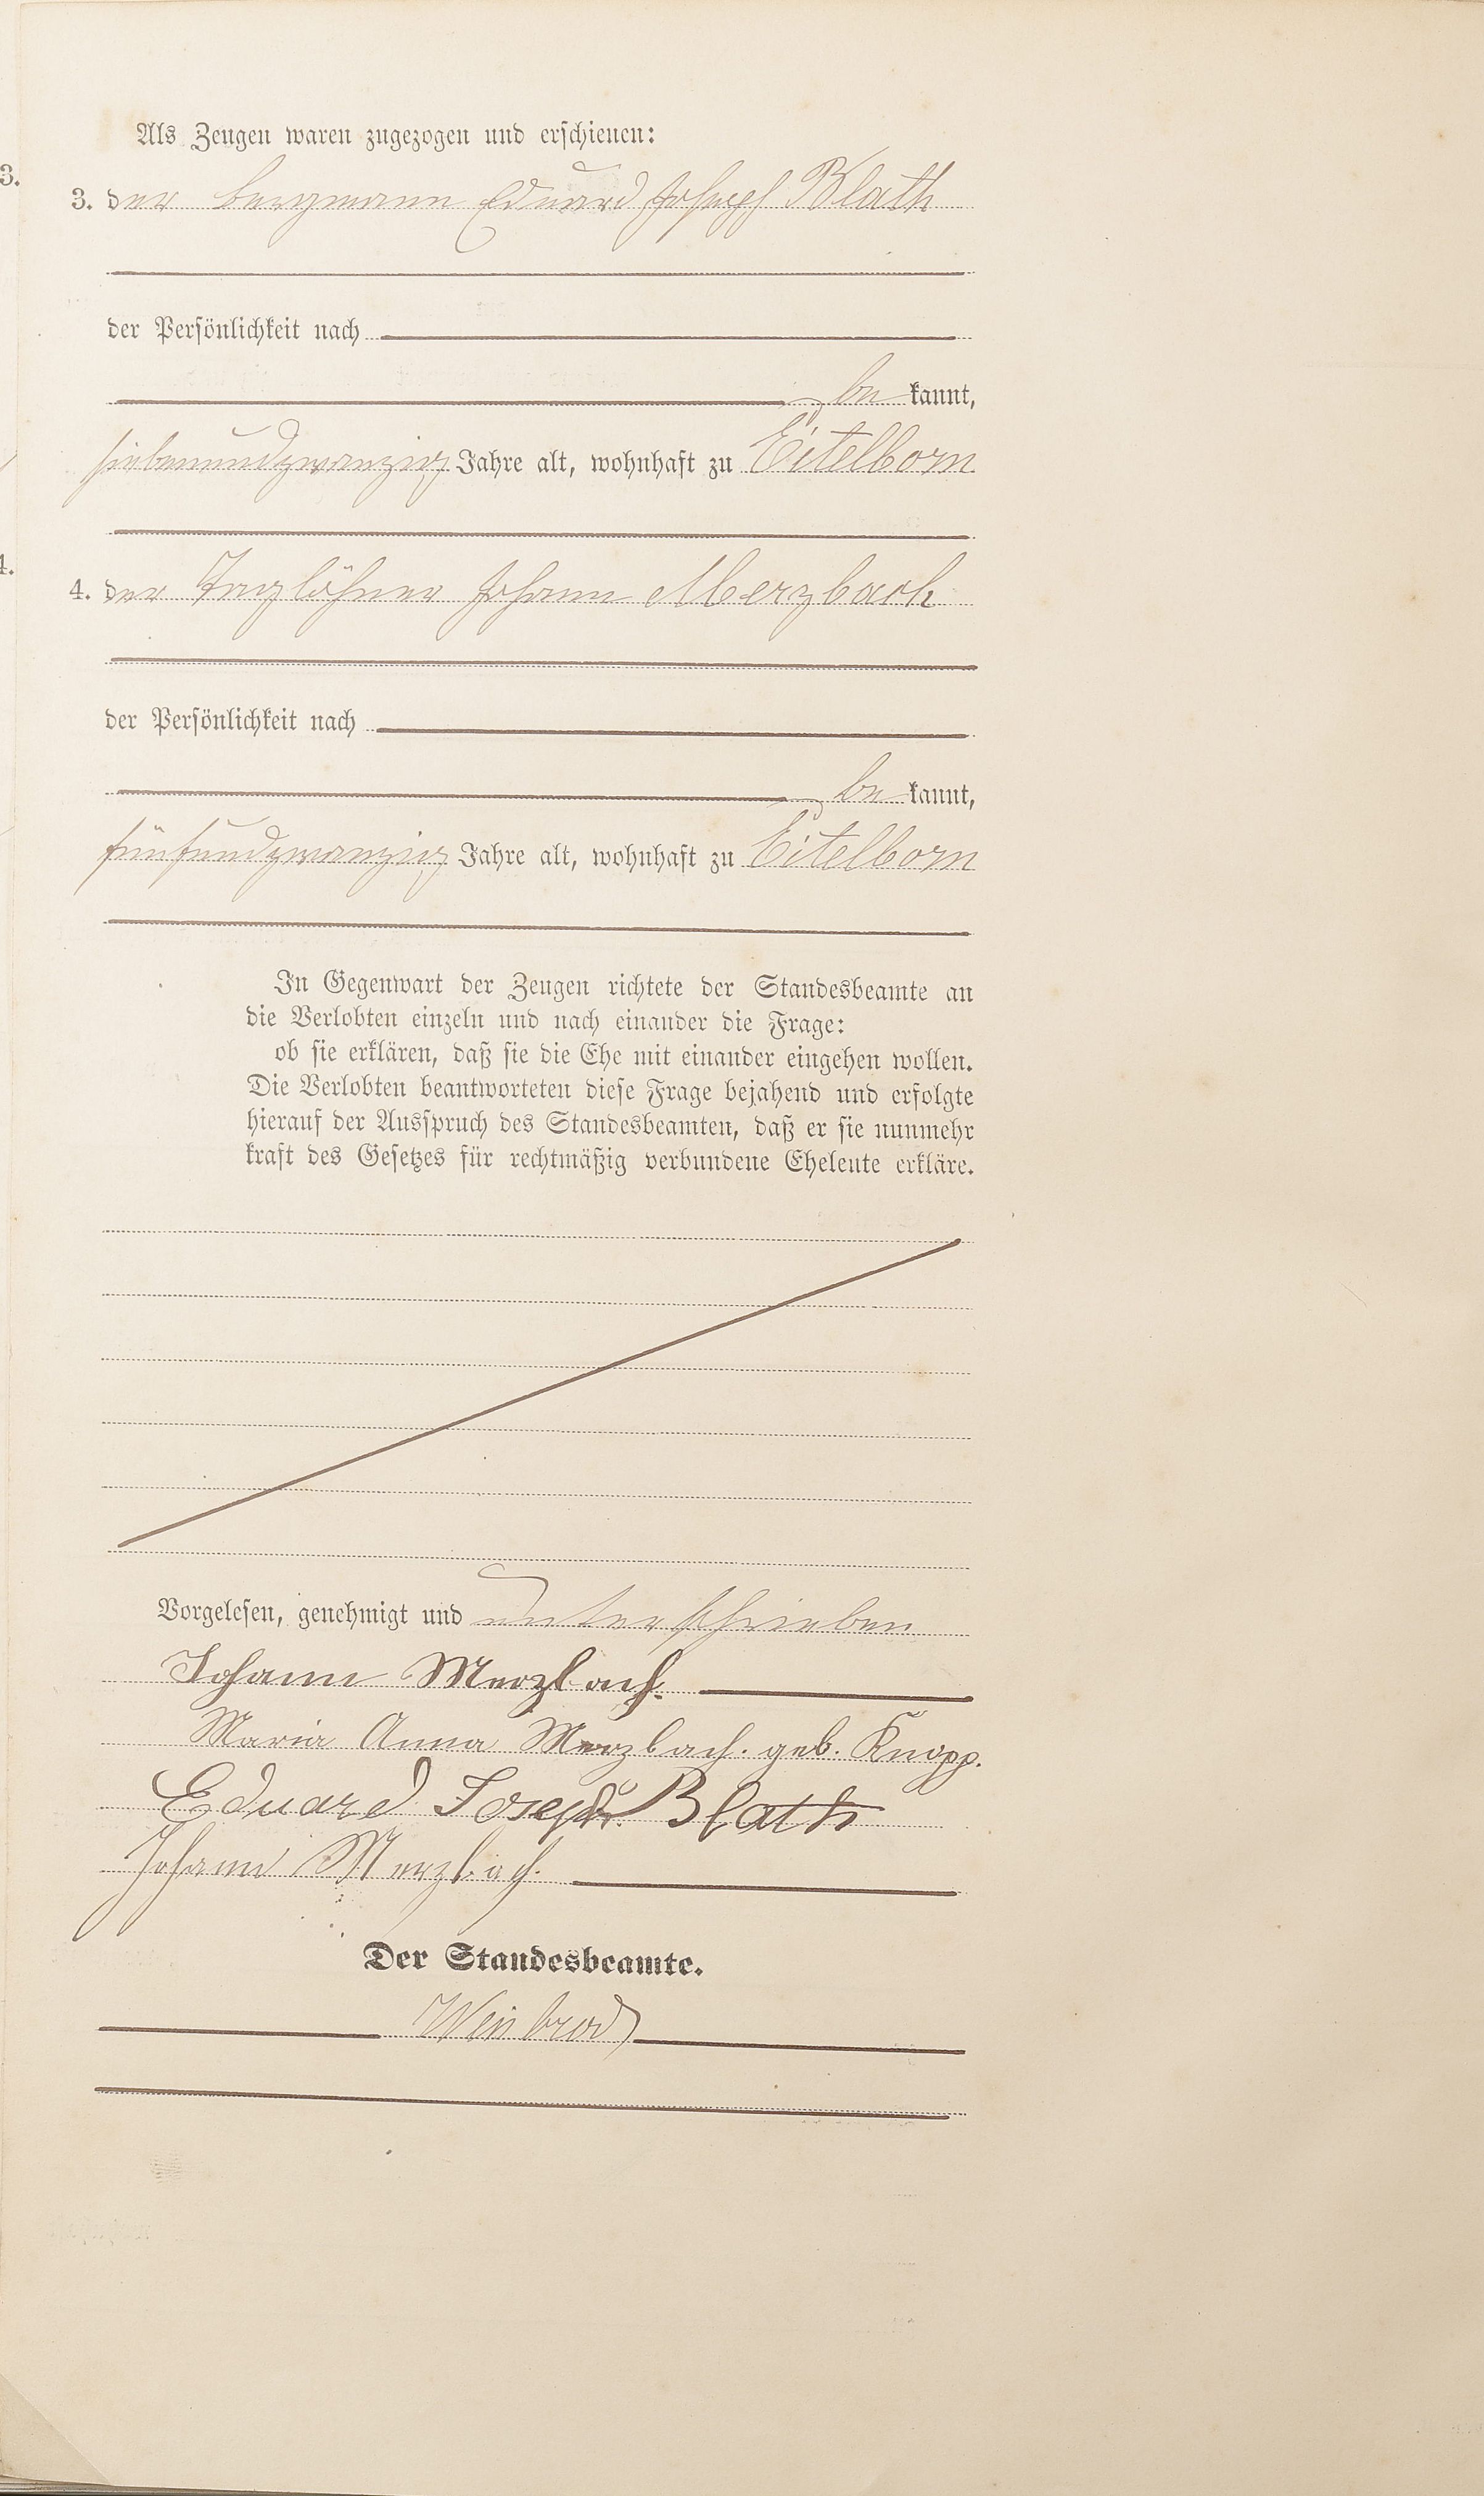 Als Zeugen waren zugezogen und erschienen:
3.
3. der Bergmann Eduard Joseph Blath
der Persönlichkeit nach
be kannt,
siebenundzwanzig Jahre alt, wohnhaft zu Eitelborn
4.
4. der Taglöhner Johann Merzbach
der Persönlichkeit nach
be kannt,
fünfundzwanzig Jahre alt, wohnhaft zu Eitelborn
In Gegenwart der Zeugen richtete der Standesbeamte an
die Verlobten einzeln und nach einander die Frage:
ob sie erklären, daß sie die Ehe mit einander eingehen wollen.
Die Verlobten beantworteten diese Frage bejahend und erfolgte
hierauf der Ausspruch des Standesbeamten, daß er sie nunmehr
kraft des Gesetzes für rechtmäßig verbundene Eheleute erkläre.
Vorgelesen, genehmigt und unterschrieben
Johann Merzbach.
Maria Anna Merzbach. geb. Knopp.
Eduard Joseph Blath
Johann Merzbach.
Der Standesbeamte.
Weinbrod